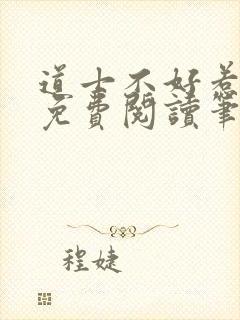 道士不好惹
免費閱讀筆
程婕